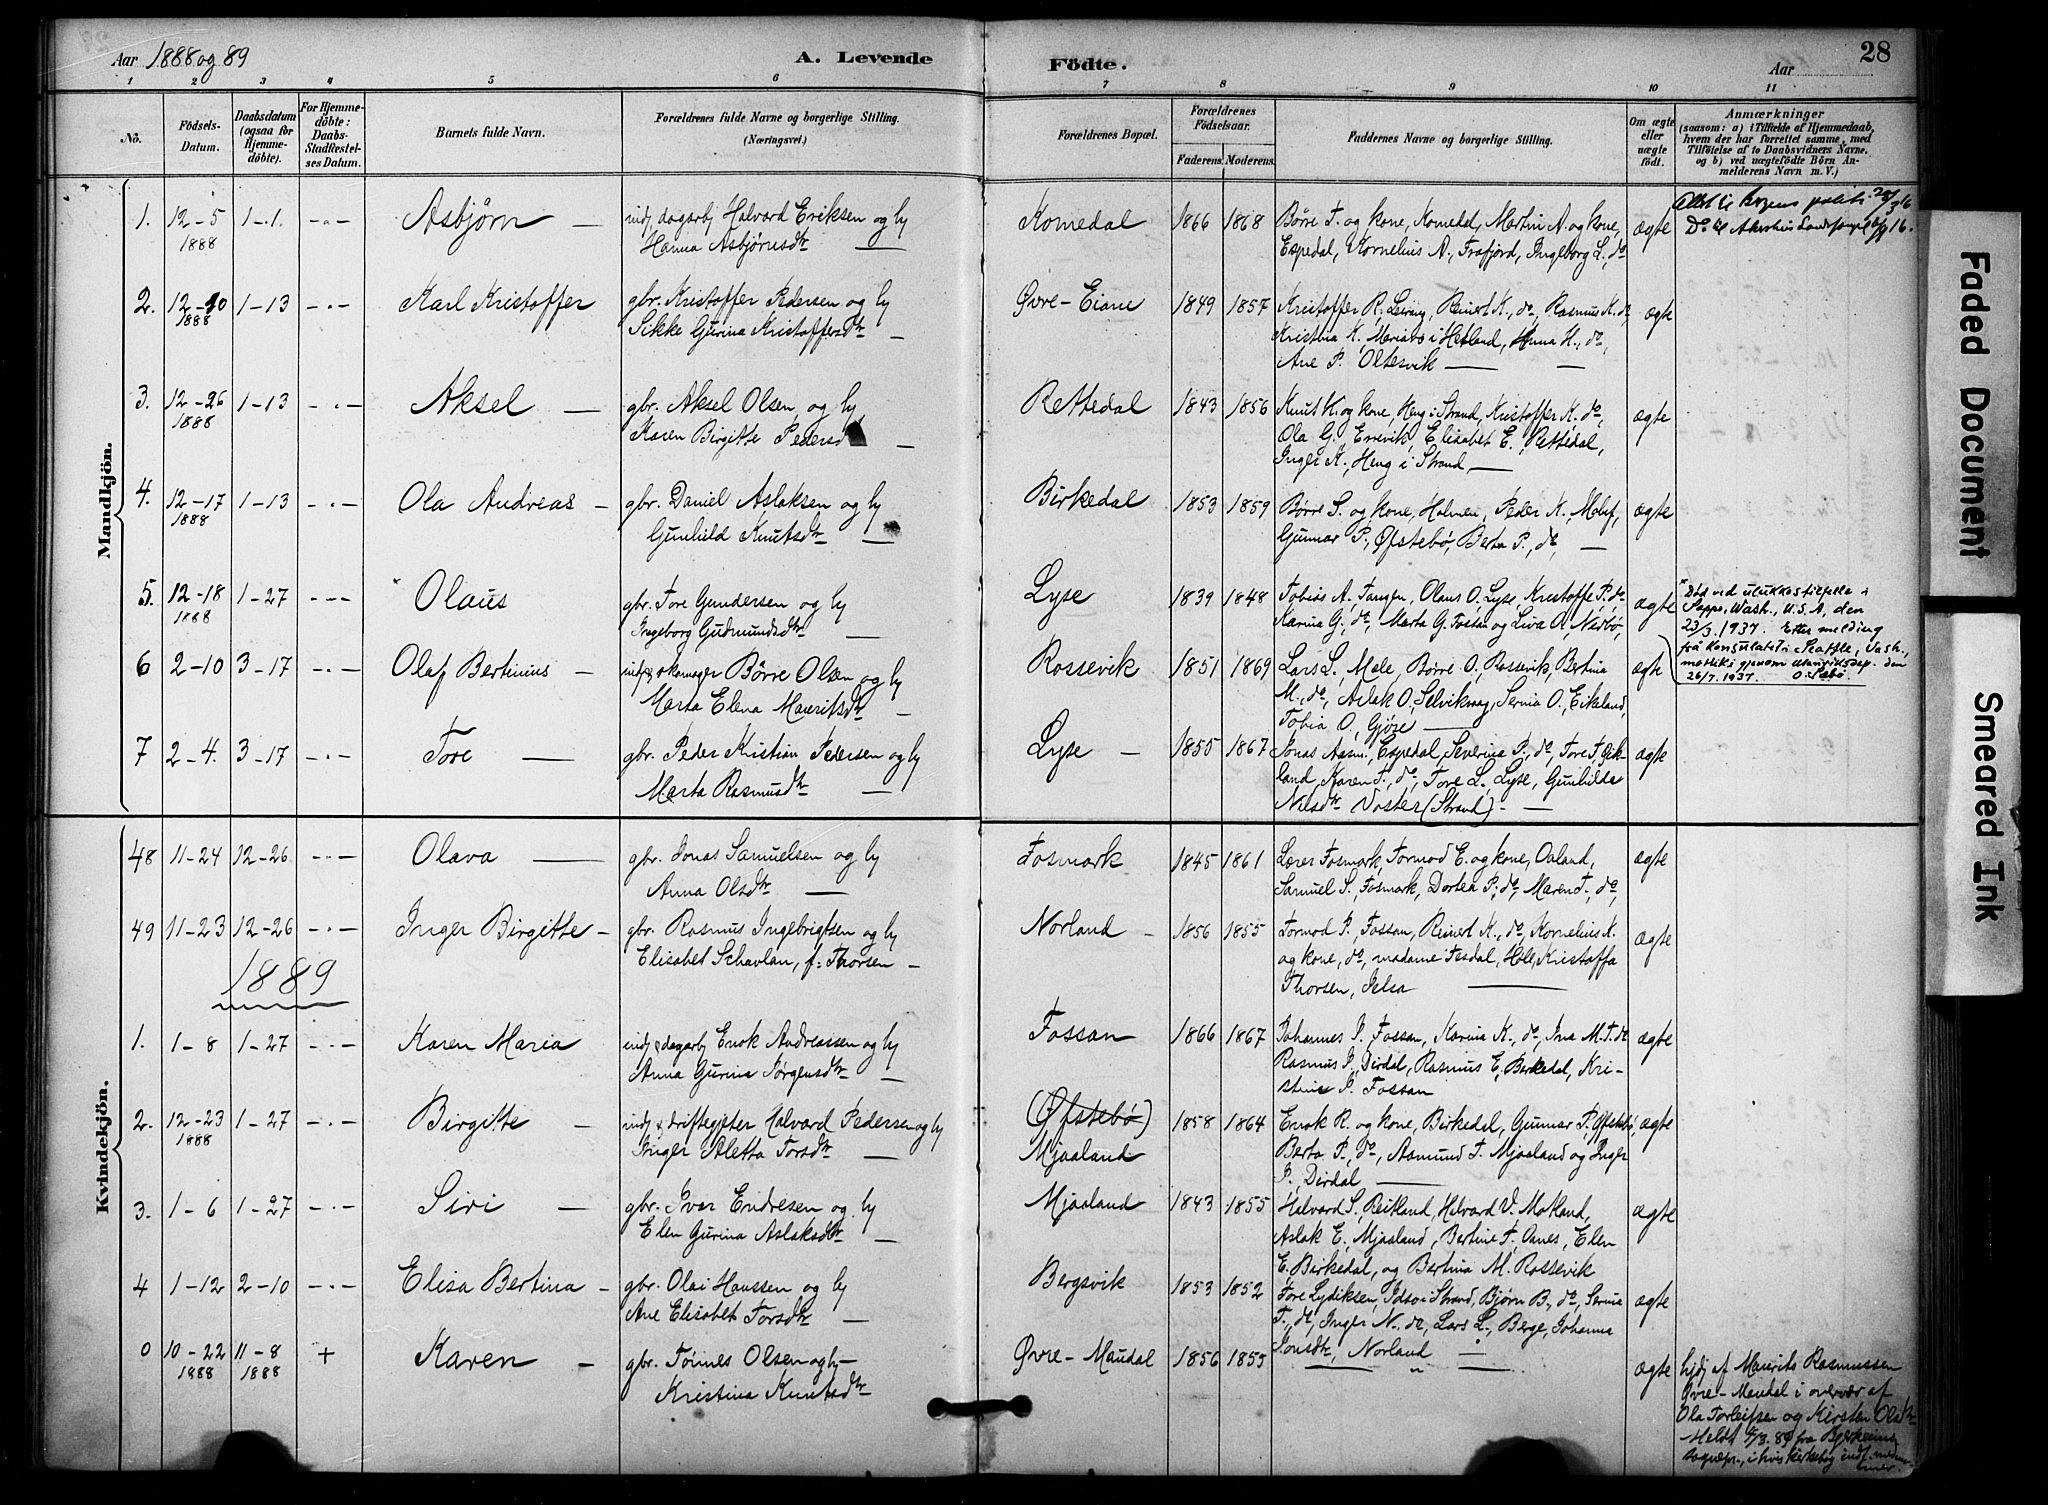 Aar 1888 og 89
A. Levende
Födte.
Aar
28
1 2 3 4 5 6 7 8 9 10 11
No.
Födsels-Datum.
Daabsdatum (ogsaa for Hjemmedöbte).
For Hjemmedöbte: Daabs-Stadfæstelses Datum.
Barnets fulde Navn.
Forældrenes fulde Navne og borgerlige Stilling. (Næringsvei.)
Forældrenes Bopæl.
Forældrenes Födselsaar.
Faderens. Moderens.
Faddernes Navne og borgerlige Stilling.
Om ægte eller uægte födt.
Anmærkninger
(saasom: a) i Tilfælde af Hjemmedaab, hvem der har forrettet samme, med Tilföielse af to Daabsvidners Navne, og b) ved uægtefödte Börn Anmelderens Navn m. V.)
Mandkjön.
1. 12-5 1888 1-1. -"- Asbjørn — indj dagarbj Halvard Eriksen og hu Hanna Asbjørnsdtr — Komedal 1866 1868 Børre T. og kone, Komedal, Martin A. og kone, Espedal, Kornelius A., Frafjord, Ingeborg L., do ægte
2. 12-10 1888 1-13 -"- Karl Kristoffer gbr. Kristoffer Pedersen og hu Sikke Gurina Kristoffersdtr — Øvre-Eiane 1849 1857 Kristoffer R. Leirang, Reinert K., do, Rasmus K. do, Kristina K., Mariabø i Hetland, Anna H., do, Ane P. Oltesvik — ægte
3. 12-26 1888 1-13 -"- Aksel — gbr. Aksel Olsen og hu Karen Birgitte Pedersd — Rettedal 1843 1856 Knut K. og kone, Heng i Strand, Kristoffer K., do, Ola G., Eresvik, Elisabet E., Rettedal, Inger K., Heng i Strand — ægte
4. 12-17 1888 1-13 -"- Ola Andreas — gbr. Daniel Aslaksen og hu Gunhild Knutsdtr — Birkedal 1853 1859 Børre S. og kone, Holmen, Peder K., Molaf, Gunnar P., Øfstebø, Berta P., do, — ægte
5. 12-18 1888 1-27 --- Olaus gbr. Tore Gundersen og hu Ingeborg Gudmundsdtr — Lyse 1839 1848 Tobias A., Tangen, Olaus O. Lyse, Kristoffe P., do Karina G., do, Marta G. Fossan og Liva O., Nedbø, ægte
Død ved ulukkestilfelle i Sappo, Wash., U.S.A., den 23/3. 1937. Etter melding frå konsulatet i Seattle, Wash., mottik i gjenom utanriksdep. den 26/7. 1937. O. Sæbø.
6 2-10 3-17 -"- Olaf Bertinius — Børre Olsen og hu Marta Elena Mauritsdtr — Rossevik 1851 1869 Lars L., Mele, Børre O., Rossevik, Bertina M., do, Aslak O., Selvikvaag, Serina O., Eikeland, Tobia O., Gjøse — ægte
7 2-4. 3-17 -"- Tore — gbr. Peder Kristian Pedersen og hu Marta Rasmusdtr — Lyse — 1855 1867 Jonas Aasm., Espedal, Severina P., do, Tore T., Eikeland, Karen T., do, Tore L., Lyse, Gunhilda Nilsdtr Voster (Strand). — ægte
Kvindekjön.
48 11-24 12-26 -"- Olava — gbr. Jonas Samuelsen og hu Anna Olsdtr — Fosmark 1845 1861 Lærer Fosmark, Tormod E. og kone, Oaland, Samuel S., Fosmark, Dortea P., do, Maren T., do, ægte
49 11-23 12-26 -"- Inger Birgitte — gbr. Rasmus Ingebrigtsen og hu Elisabet Schavlan, f. Thorsen — Norland — 1856 1855 Tormod P., Fossan, Reinert K., do, Kornelius K. og kone, do, madame Tesdal, Hole, Kristoffa Thorsen, Jelsa — ægte
1889
1. 1-8 1-27 -"- Karen Maria indj & dagarbj Enok Andreassen og hu Anna Gurina Jørgensdtr — Fossan 1866 1867 Johannes J. Fossan, Karina K., do, Ina M. T. do Rasmus J., Dirdal, Rasmus E., Berkedal, Kristine J. Fossan ægte
2. 12-23 1888 1-27 -"- Birgitte — indj & driftegjeter Halvard Pedersen og hu Inger Aletta Torsdtr — (Øfstebø) Mjaaland 1858 1864 Enok R. og kone, Birkedal, Gunnar P., Øfstebø, Berta P., do, Aasmund T. Mjaaland og Inger J., Dirdal — ægte
3. 1-6 1-27 -"- Siri — gbr. Ivar Endresen og hu Elen Gurina Aslaksdtr — Mjaaland 1843 1855 Halvard S., Reitland, Halvard V. Motland, Aslak E., Mjaaland, Bertine T., Oanes, Elen E., Birkedal, og Bertina M. Rossevik ægte
4 1-12 2-10 -"- Elisa Bertina — gbr. Olai Hanssen og hu Ane Elisabet Torsdtr — Bergsvik 1853 1852 Tore Lydiksen, Idsø i Strand, Bjørn B., do, Serina T., do, Inger N., do, Lars L., Berge, Johanna Jonsdtr, Norland — ægte
0 10-22 1888 11-8 1888 + Karen — gbr. Tønnes Olsen og hu — Kristina Knutsdtr Øvre-Maudal 1856 1855 — " — ægte
hjdj af Maurits Rasmussen Øvre-Maudal i overvær af Ola Torleifsen og Kirsten Olsdtr Meldt /3. 89 fra Bjerkreims sognepr., i hvis kirkebog indf.
Faded Document
Smeared Ink